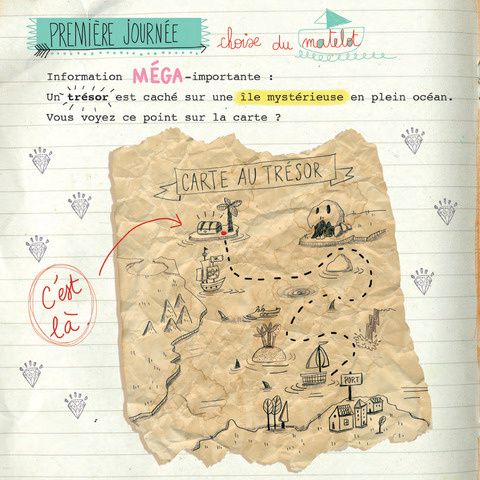 PREMIÈRE JOURNÉE
choise du matelot
Information MÉGA-importante :
Un trésor est caché sur une île mystérieuse en plein océan.
Vous voyez ce point sur la carte ?
CARTE AU TRÉSOR
C'est
là
PORT